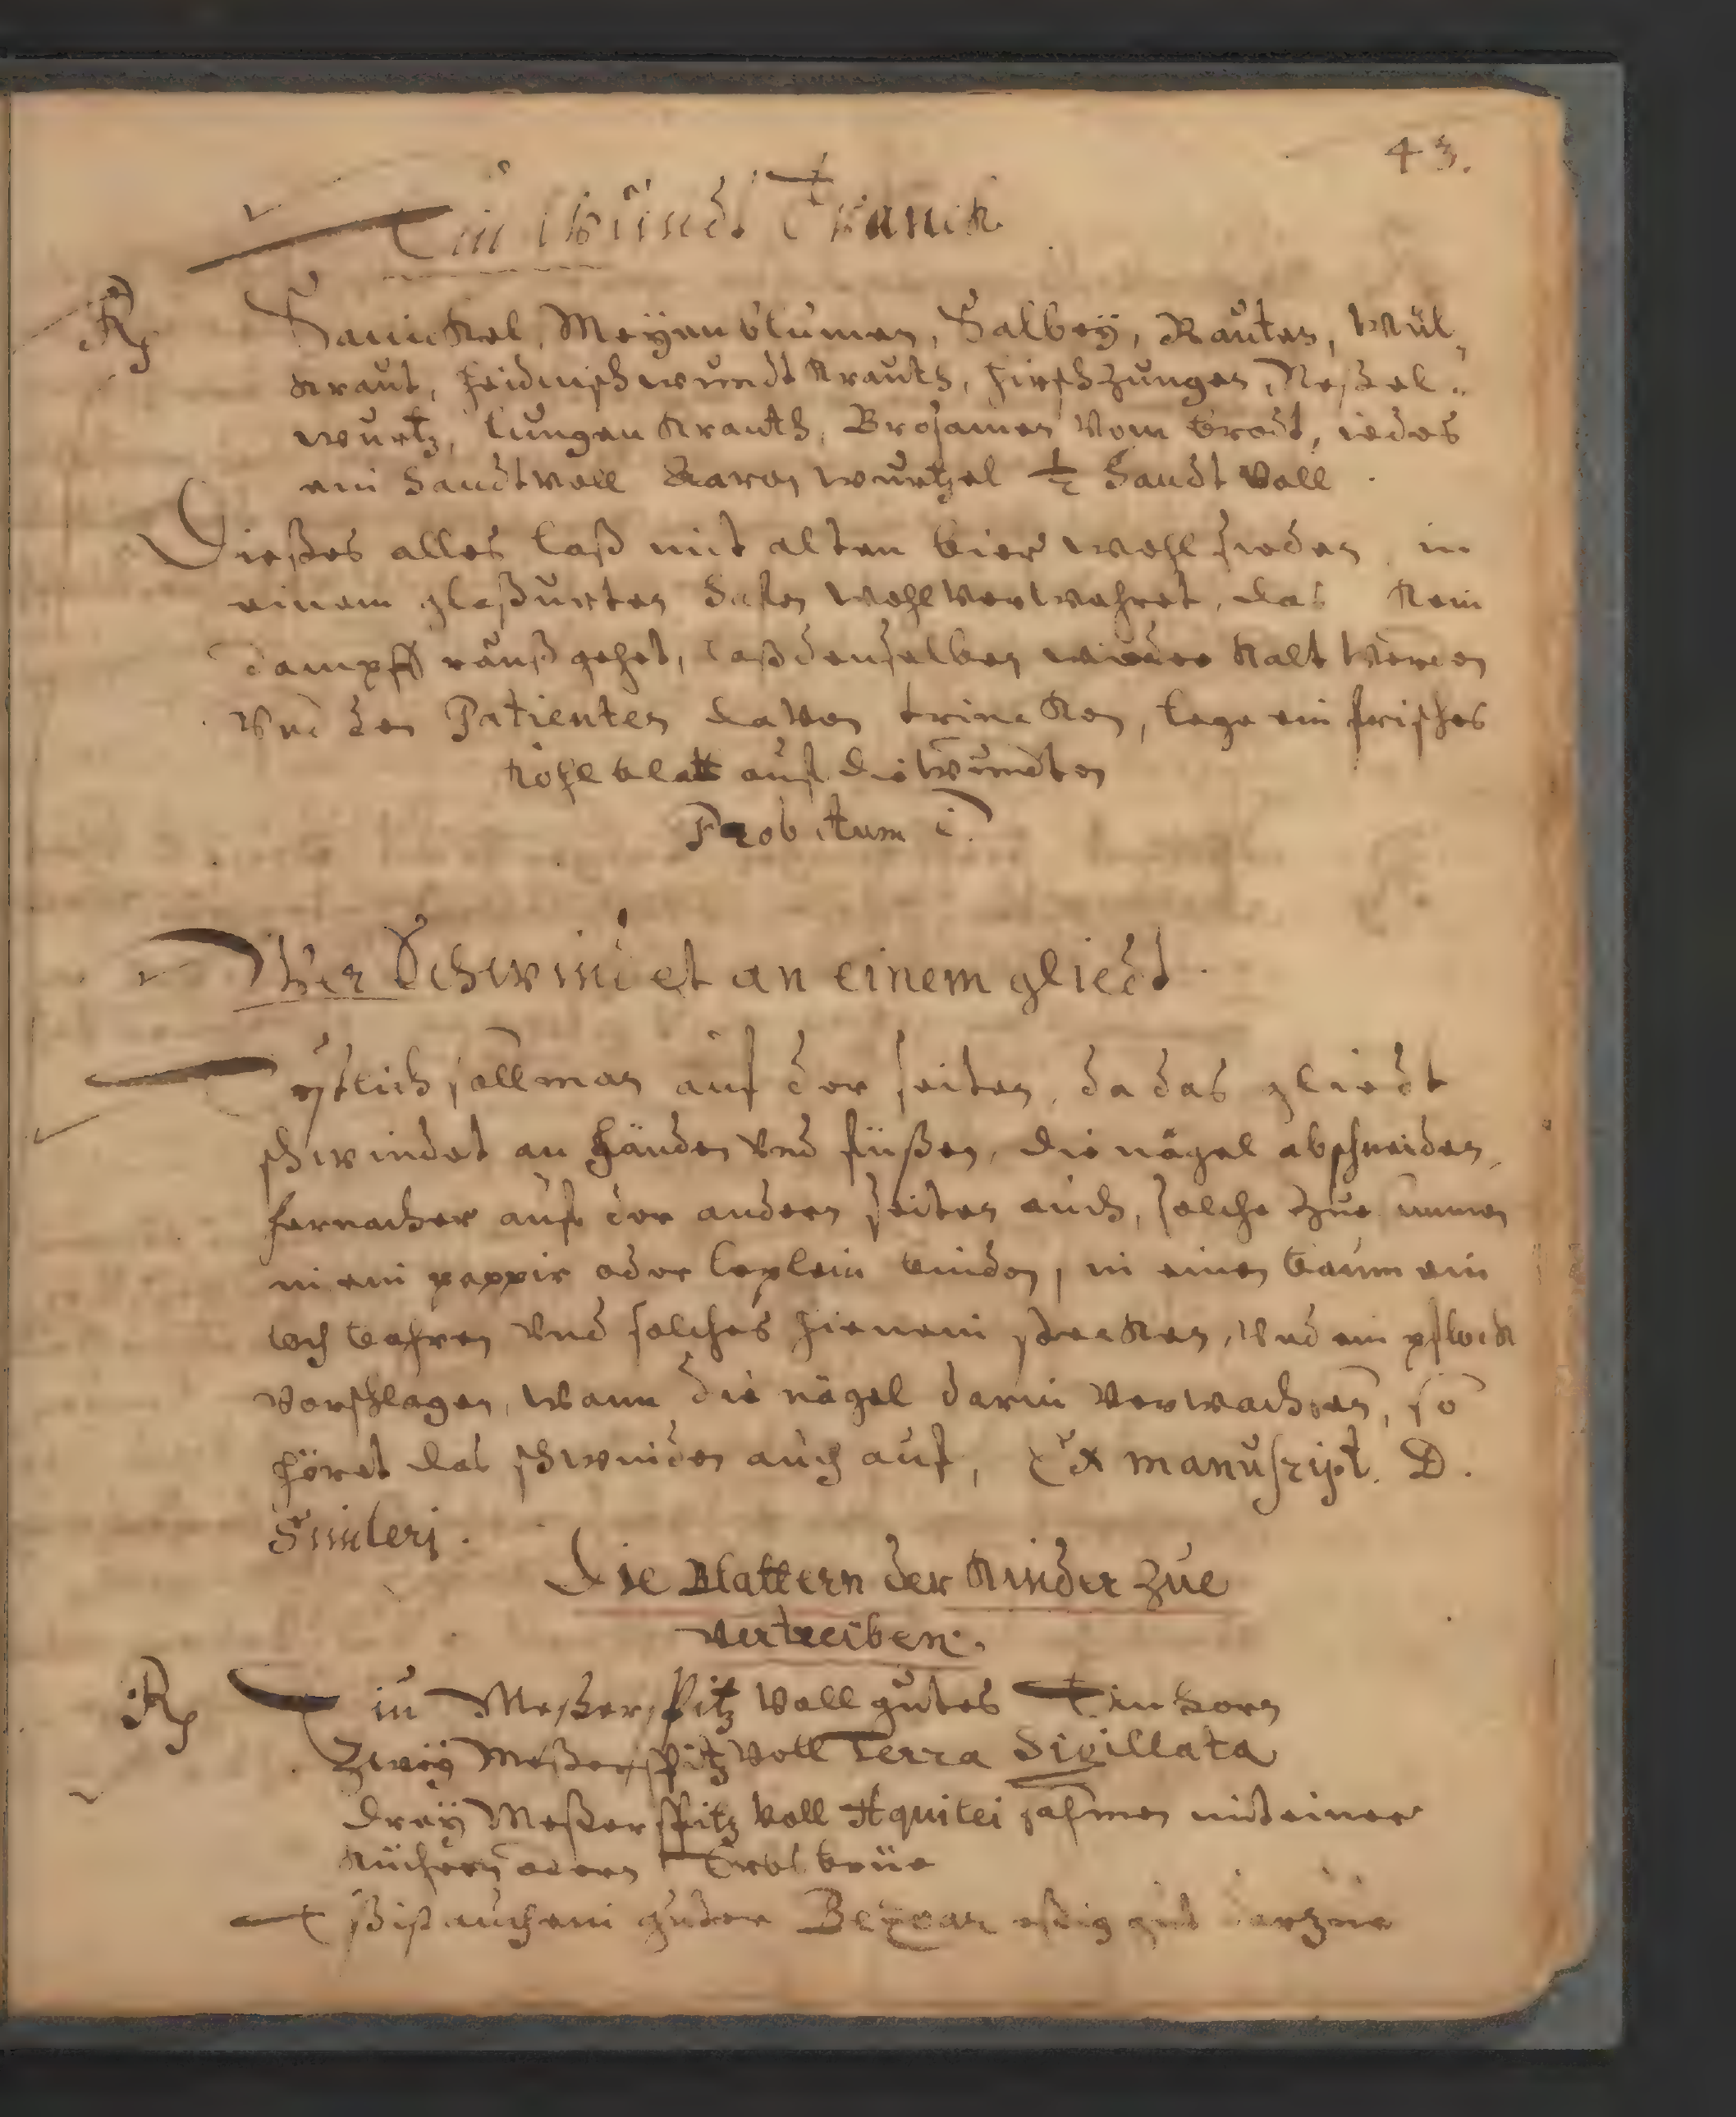 43.
Ein Wundt Tranck
Rp Sanickel, Meyenblumen, Salbey, Rauten, Wül,,
kraut, heidnischwundt krauth, hirschzungen, Neßel,,
wurtz, lungen krauth, Brosamen vom brodt, iedes
ein handtvoll Aaron wurtzel ½ handt voll.
Dießes alles laß mit alten bier wohl sieden, in
einem glaßurten hafen wohl verwahret, das kein
dampff rauß gehet, laß denselben wieder kalt werden
vnd den Patienten davon trincken, lege ein frisches
kohl blatt auf die wundten
Probatum
Wer Schwindet an einem gliedt.
Erstlich soll man auf der seiten, da das gliedt
schwindet an händen vnd füßen, die nägel abschneiden,
hernacher auf der andern seiten auch, solche
in ein pappir oder leplein binden, in einen baum ein
loch bohren vnd solches hienein stecken, vnd ein pflock
vorschlagen, wann die nägel darin verwachsen, so
höret das schwinden auch auf, Ex manuscript. D.
Simleri.
Die Blattern der Kinder zue
vertreiben.
Rp Ein Meßerspitz voll gutes Einhorn
Zweÿ Meßerspitz voll Terra Sigillata
dreÿ Meßerspitz voll Aquilei sahmen mit einer
Eß ist auch ein guter Bezoar eßig gut darzue